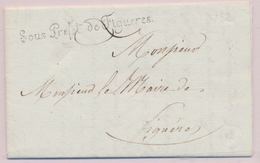 Sous Préft de Figueres.
Monsieur
Monsieur le Maire de
Figuère